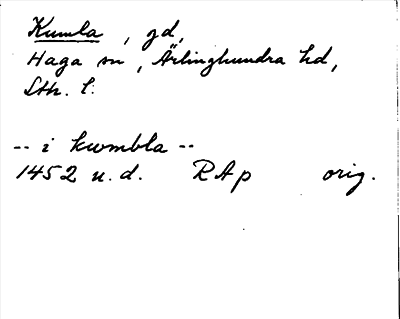 Kumla, gd,
Haga sn, Ärlinghundra hd,
Sth. l.
-- i kwmbla --
1452 u.d. RAp orig.